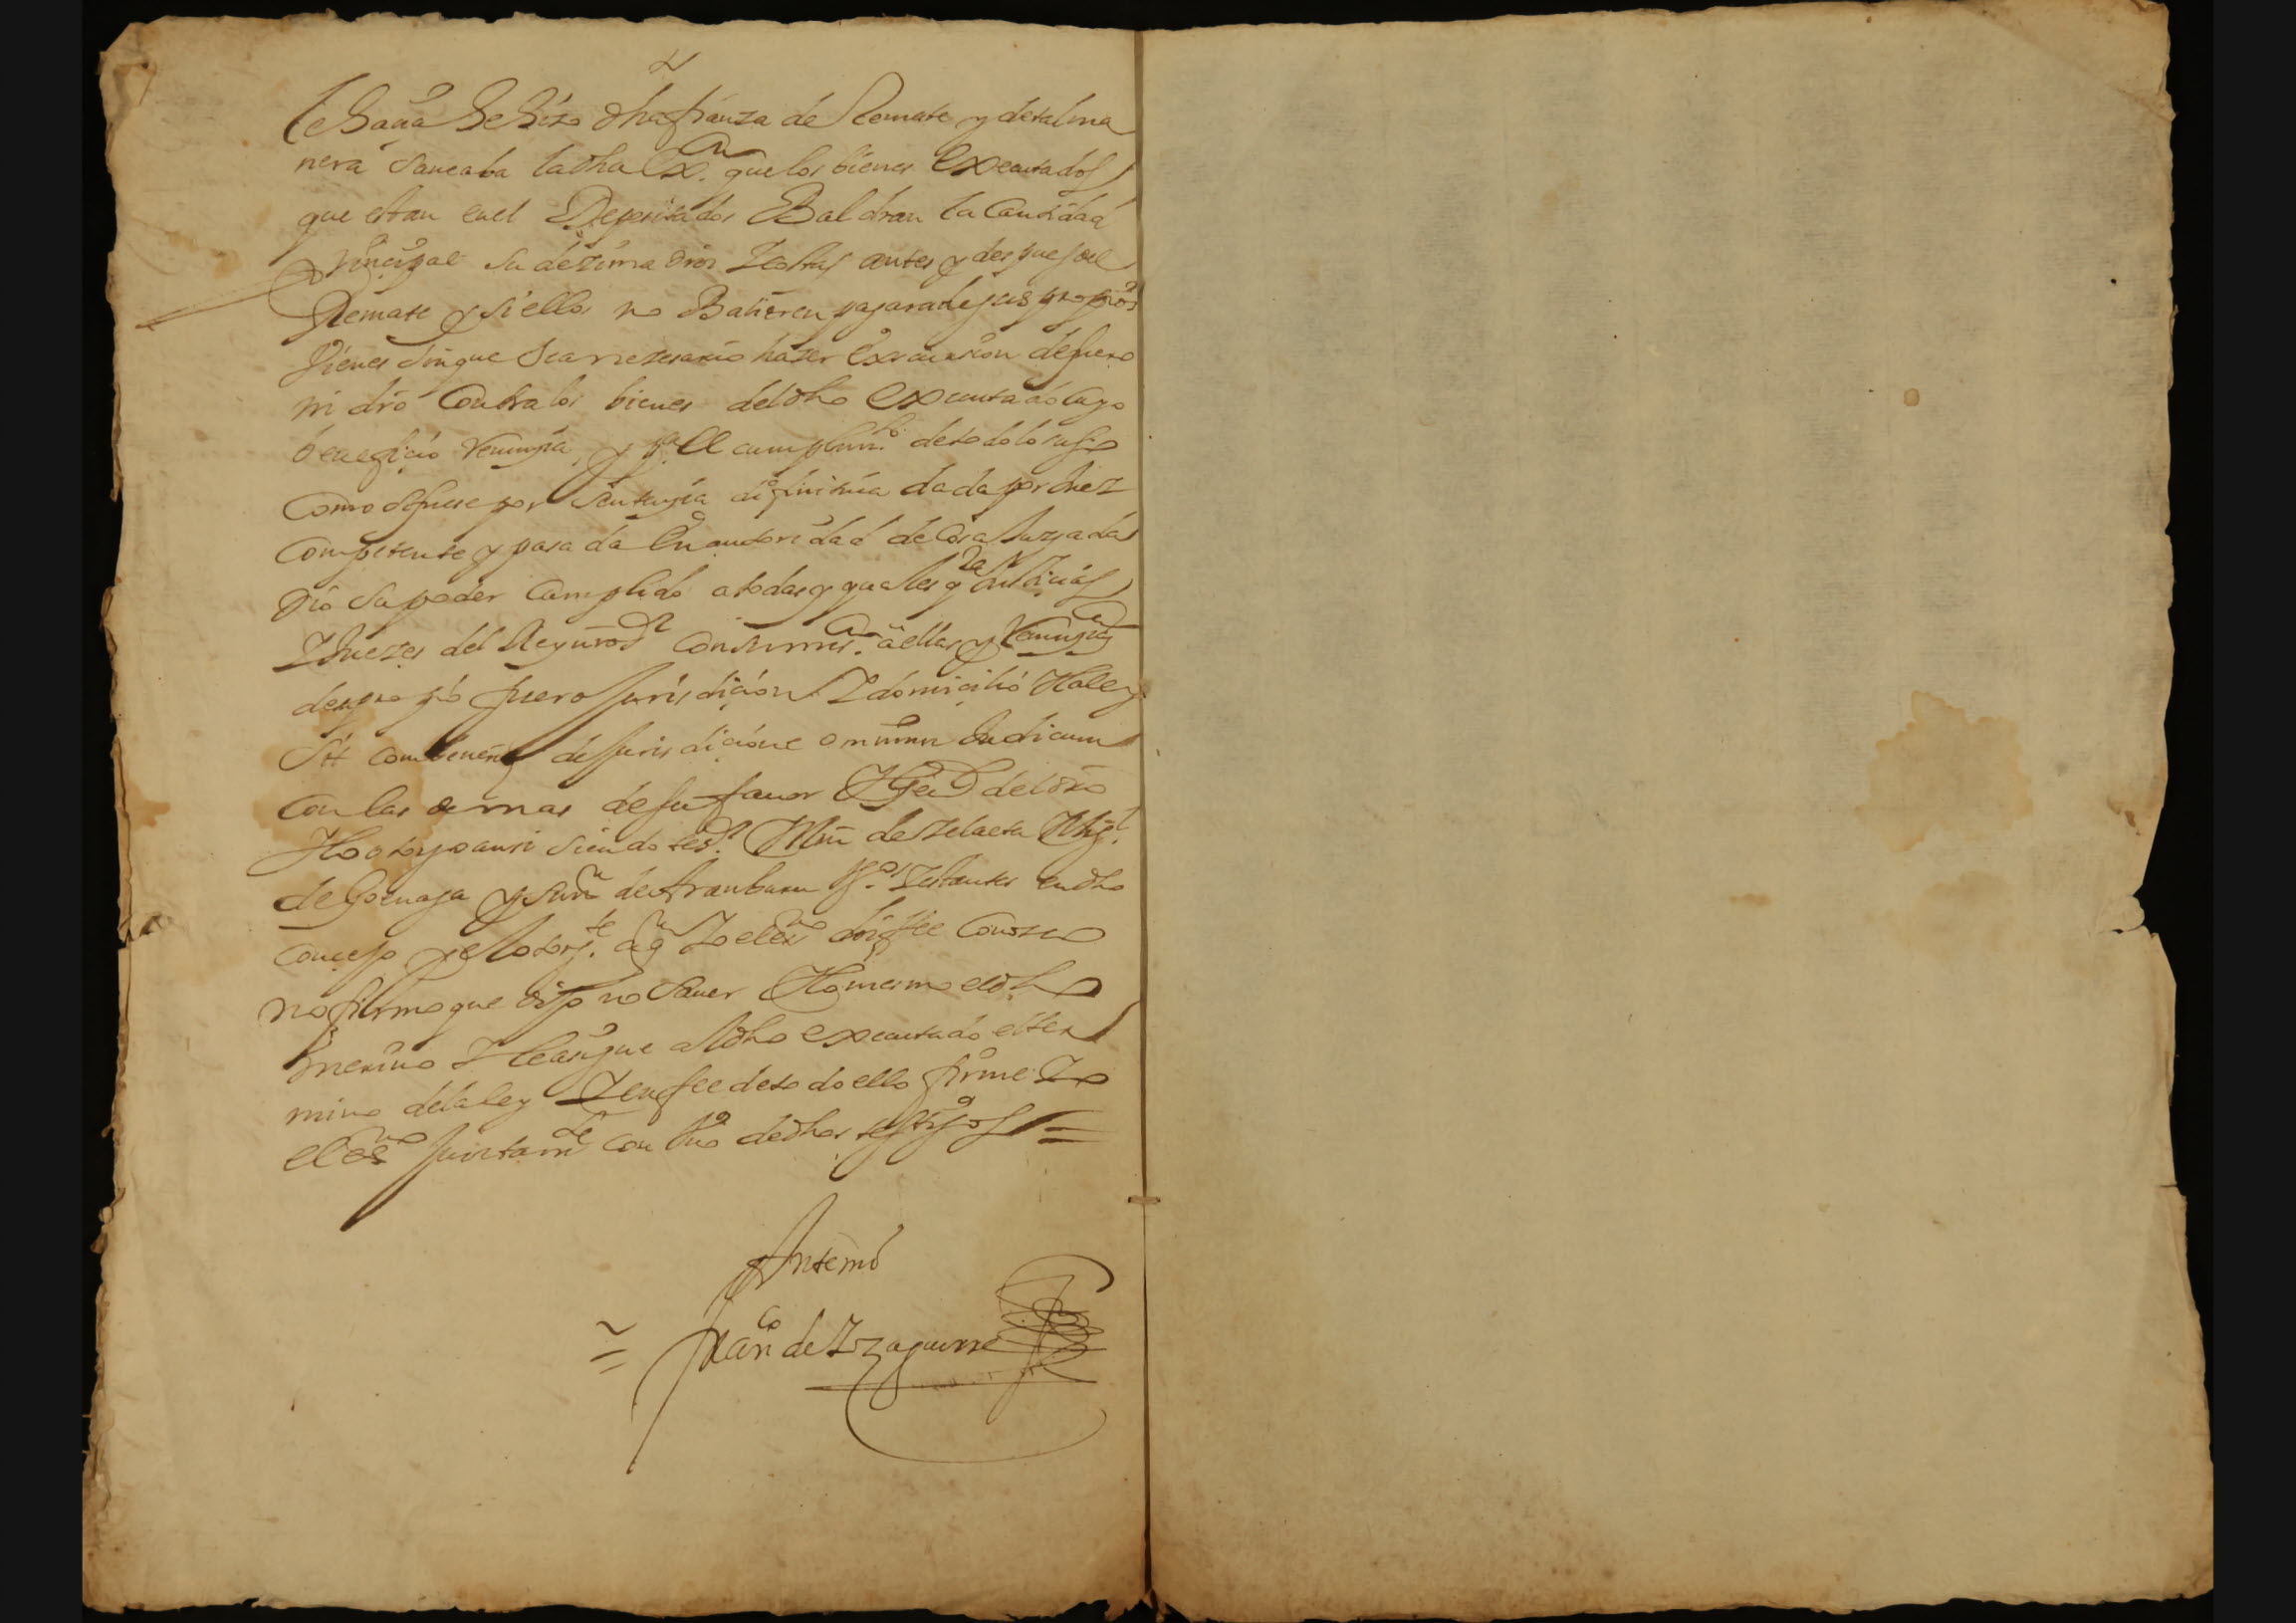 le haçia he hizo dha fianza de Remate y de tal ma
nera saneaba la dha exon. que los bienes executados
que estan en el Depositados Baldran la Cantidad
prinçipal su dezima dros Y costas antes y despues del
Remate y si ellos no Balieren pagara de sus propios
Vienes sin que sea nezesario hazer excursion de fuero
ni dro Contra los bienes del dho executado Cuyo
benefiçio renunçia, y pa. el cumplimto. de todo lo suso
Como si fuese por sentençia difinitiua dada por Juez
Competente y pasada en autoridad de Cosa Juzgada
Dio su poder Cumplido a todas y quales qra Justiçias
Y Juezes del Rey nro Sr Con sumisn. a ellas y renunçiaon
de su propio fuero Jurisdiçion Y domiçilio Y la ley
Sit combenerit de Jurisdiçione omnium Judicum
Con las demas de su fauor Y gen del dro
Y lo otorgo ansi siendo tesgs. Mrn de Zelaeta Migl.
de Goenaga y Jun de Aranburu Vos. Y estantes en dho
Conçejo y el otorgte. a qn Yo el esno doi fee Conozco
no firmo que dijo no sauer Y lo mesmo el dho
merino Y le asigne al dho executado el ter
mino de la ley Y en fee de todo ello firme Yo
el esno Juntamte con vno de dhos testigos =
Ante mi
= Franco de Yzaguirre